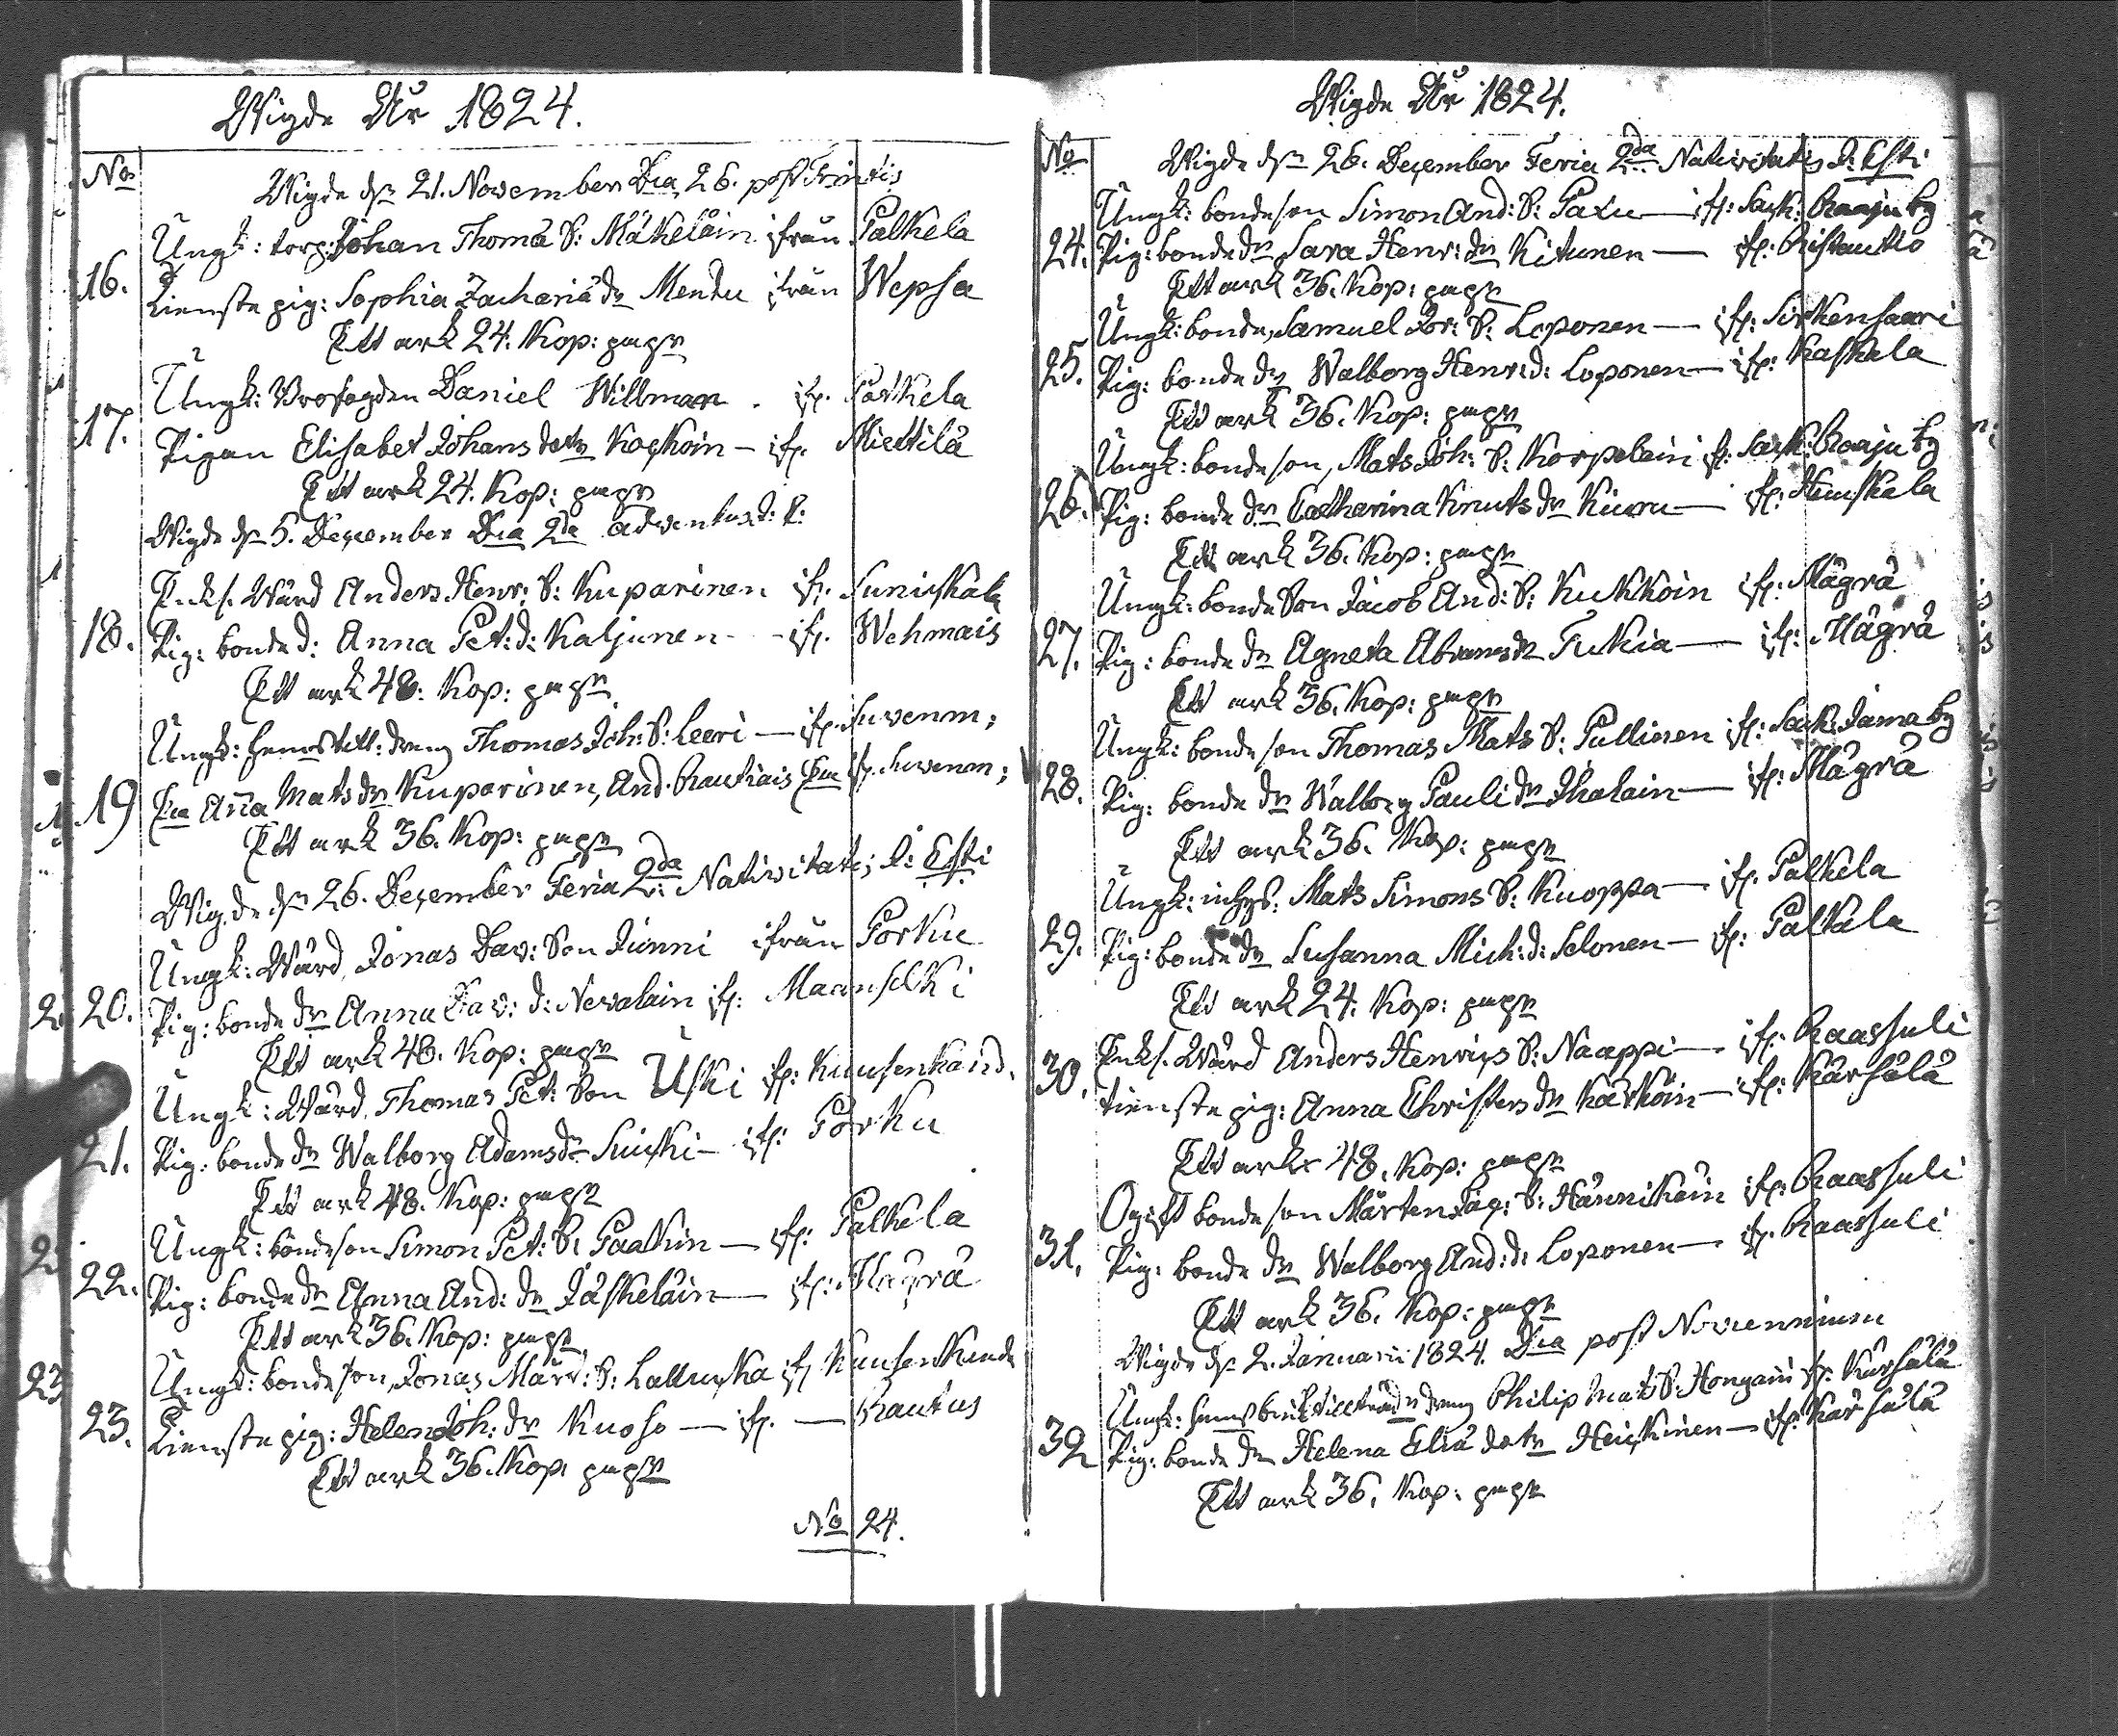 Wigde År 1824.
No
Wigde dn 21. November Dca 26. post Trinitis
Ungk: torp: Johan Thomä S: Mäkeläin ifrån Palkela
16. tienste pig: Sophia Zachariä dr Mentu ifrån Wepsa
Ett ark 24. Kop: papr
Ungk: Brofogden Daniel Willman . ifr. Palkela
17. Pigan Elisabet Johans dotr Koskoin – ifr. Miettilä
Ett ark 24. Kop: papr
Wigde dn 5. December Dca 2da Adventus D:
Enkl. Wärd Anders Henr: S: Kuparinen ifr.
18. Pig: bonde d: Anna Pet: d: Kaljunen – ifr. Wehmais
Ett ark 48. Kop: papr
Ungk: Thomas Joh: S: Leeri – ifr. Suvenm;
19 Eca Aña Mats dr Kuparinen, And. Rautiais Eca ifr. Suvenm;
Ett ark 36. Kop: papr
Wigde dn 26. December Feria 2da Nativitatis
Ungk: Wärd, Jonas Dav: Son Junni ifrån Porku
20. Pig: bonde dr Anna Dav: d: Nevalain ifr: Maanselki
Ett ark 48. Kop: papr
Ungk: Wärd, Thomas Pet: Son Uski ifr: Kuusenkand.
21. Pig: bonde dr Walborg Adamsdr Suicki – ifr: Porku
Ett ark 48. Kop: papr
Ungk: bondeson Simon Pet: S: Paakin — ifr: Palkela
22. Pig: bonde dr Anna And: dr Jäskeläin — ifr: Mägrä
Ett ark 36. Kop: papr
Ungk: bondeson, Jonas Märt: S: Lallucka ifr Kuusenkand
23. tienste pig: Helena Joh: dr Kuoso — ifr. — Rautus
Ett ark 36. Kop: papr
No 24.
Wigde År 1824.
No
Wigde dn 26. December Feria 2da Nativitatis
Ungk: bondeson Simon And: S: Paxu — ifr: Sack: Raaju by
24. Pig: bonde dr Sara Henr: dr Kitunen — ifr: Ristautio
Ett ark 36. Kop: papr
Ungk: bonde, Samuel S: Loponen — ifr: Sirkensaari
25. Pig: bonde dr Walborg Henr: d: Loponen — ifr: Kaskela
Ett ark 36. Kop: papr
Ungk: bondeson, Mats Joh: S: Korpelain ifr: Sack: Raaju by
26. Pig: bonde dr Catharina Knuts dr Kiuru — ifr:
Ett ark 36. Kop: papr
Ungk: bonde Son Jacob And: S: Kukkoin ifr: Mägrä
27. Pig: bonde dr Agneta Abrams dr Tukia — ifr: Mägrä
Ett ark 36. Kop: papr
Ungk: bondeson Thomas Mats S: Pullinen ifr: Sack: Jama by
28. Pig: bonde dr Walborg Pauli dr Ihalain — ifr: Mägrä
Ett ark 36. Kop: papr
Ungk: inhys: Mats Simons S: Kuoppa — ifr. Palkela
29. Pig: bonde dr Susanna Mich: d: Selonen — ifr: Palkela
Ett ark 24. Kop: papr
Enkl. Wärd Anders Henrics S: Naappi — ifr: Raassuli
30. tienste pig: Anna Christers dr Kärköin — ifr: Kärsälä
Ett ark 48. Kop: papr
Ogift bondeson Mårten S: Hännikäin ifr: Raassuli
31. Pig: bonde dr Walborg And: d: Loponen — ifr. Raassuli
Ett ark 36. Kop: papr
Wigde dn 2. Januarii 1824. Dca post
Ungk: Philip Mats S: Hongain ifr: Kärsälä
32 Pig: bonde dr Helena Eliä dotr Heickinen — ifr: Kärsälä
Ett ark 36. Kop: papr